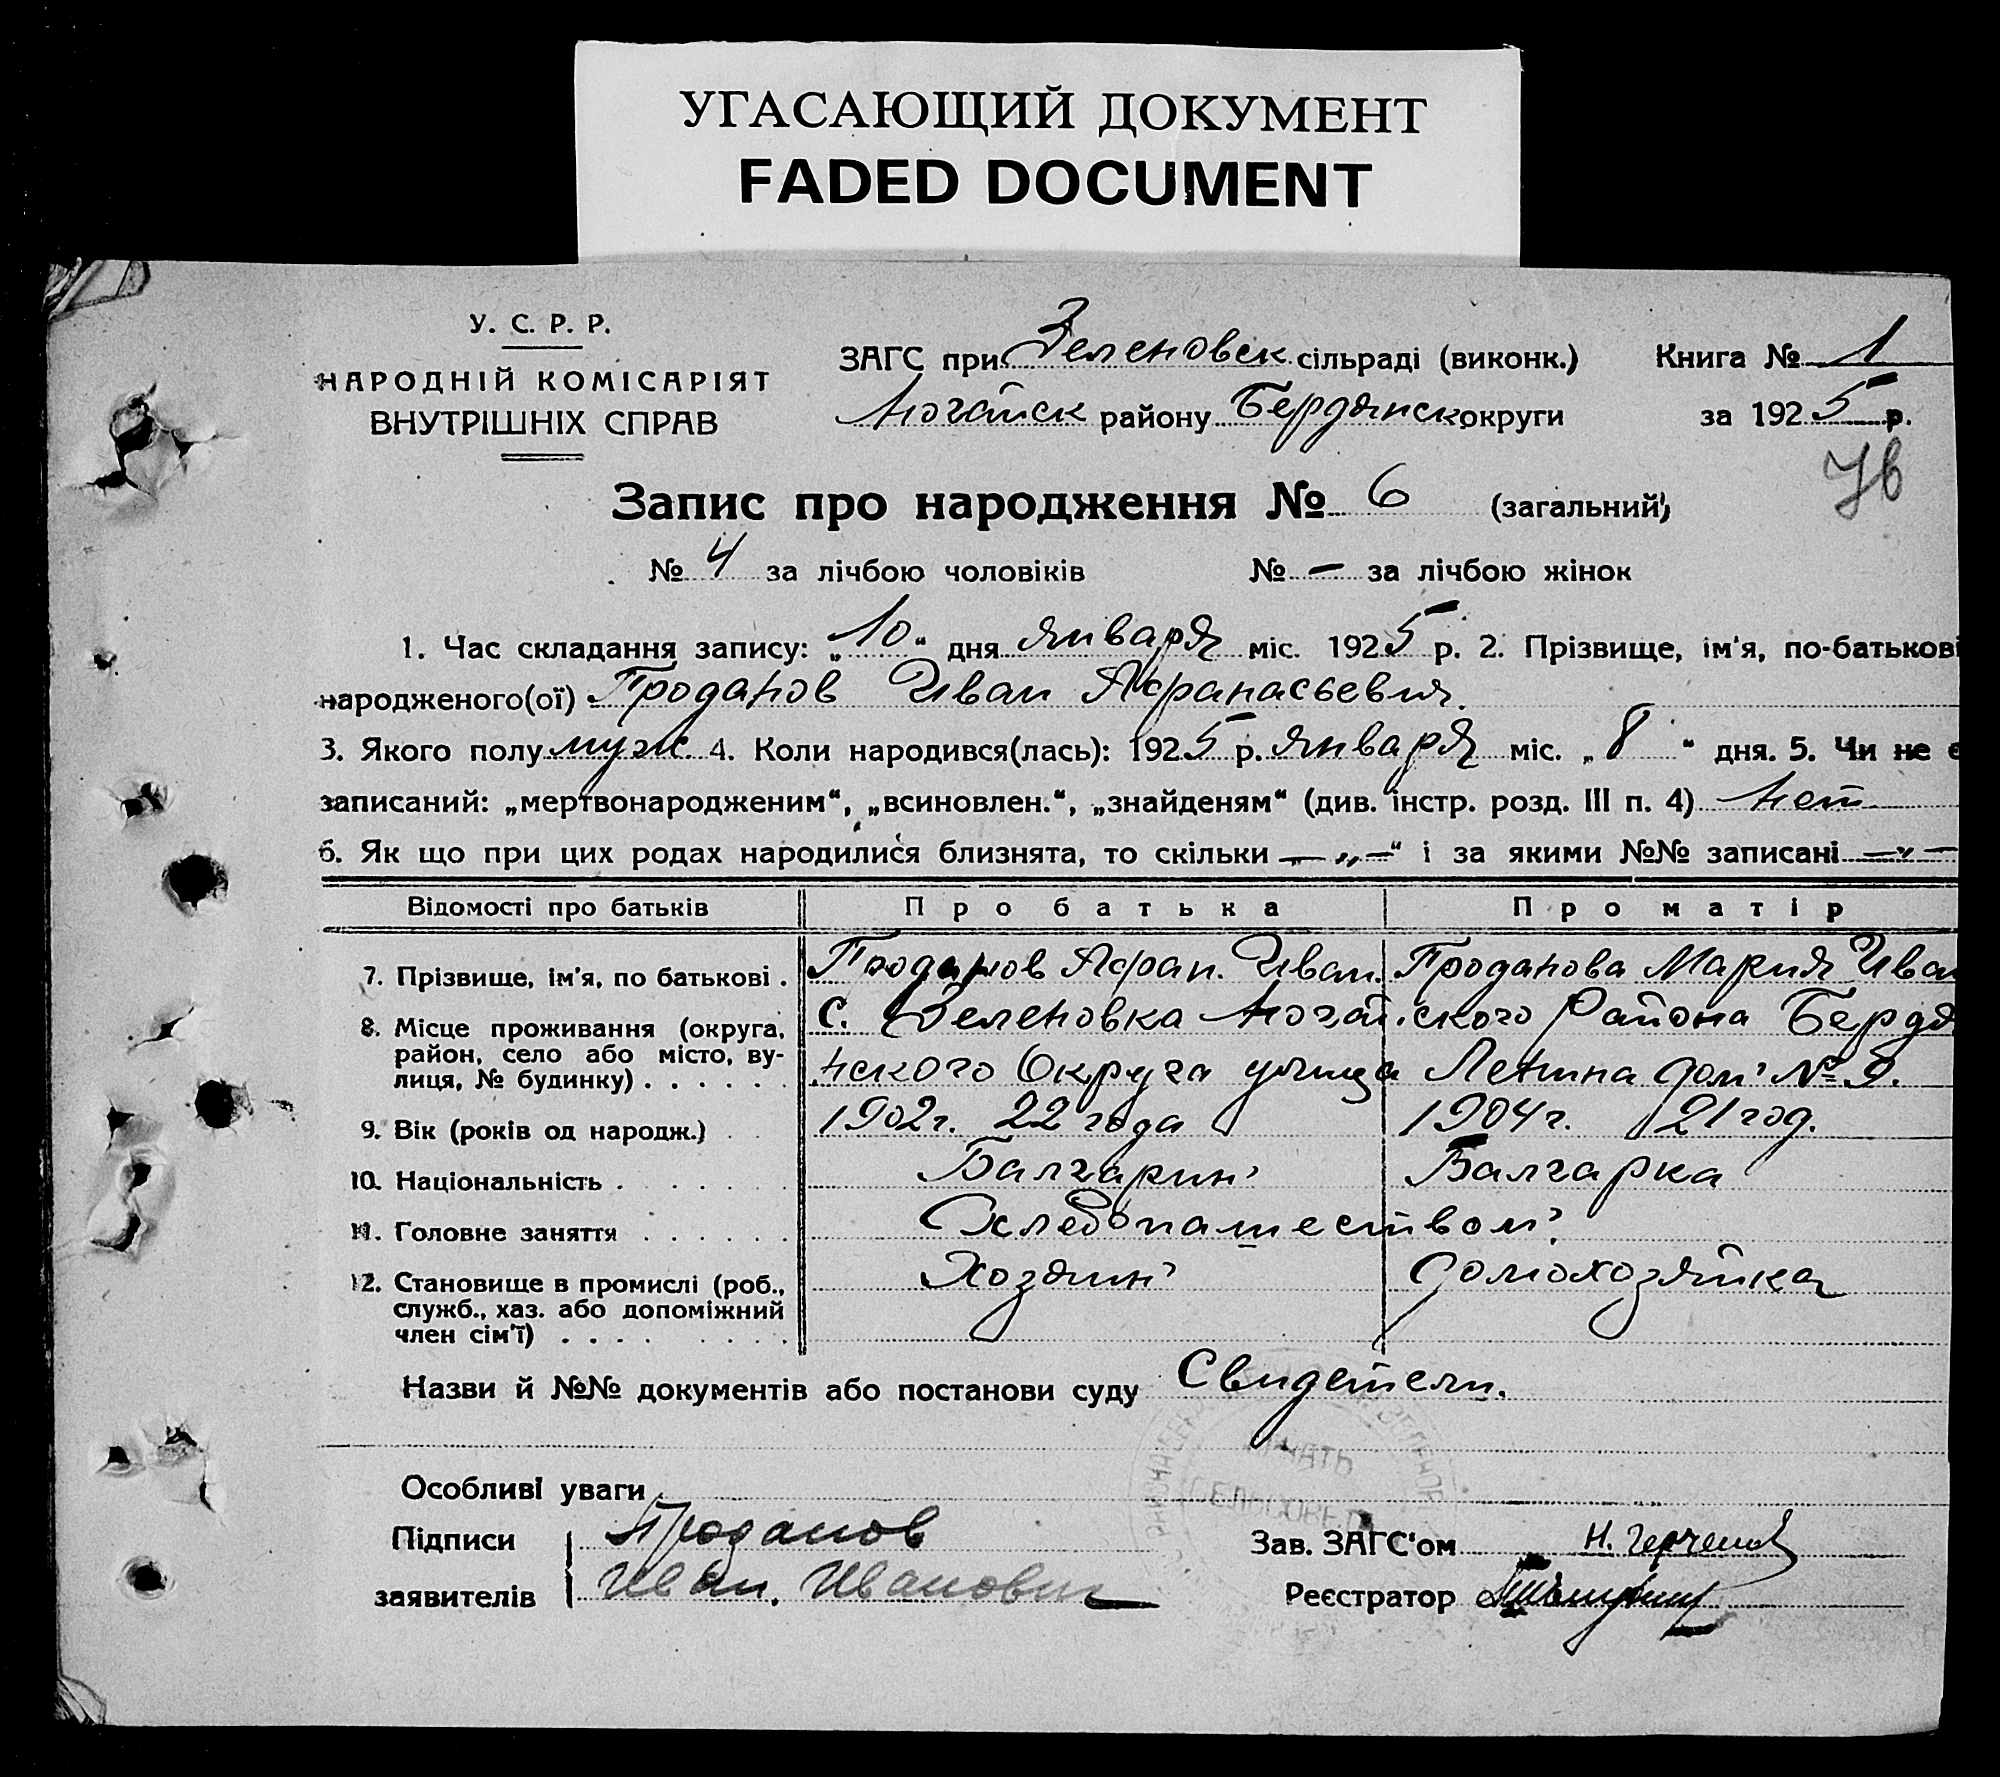 УГАСАЮЩИЙ ДОКУМЕНТ
FADED DOCUMENT
У. С. Р. Р.
НАРОДНІЙ КОМІСАРІЯТ
ВНУТРІШНІХ СПРАВ
ЗАГС при Зеленовск сільраді (виконк.) Книга № 1
Ногайск району Бердянск округи за 1925 р.
Запис про народження № 6 (загальний)
№ 4 за лічбою чоловіків № — за лічбою жінок
1. Час складання запису: „10“ дня января міс. 1925 р. 2. Прізвище, ім'я, по-батькові
народженого(ої) Проданов Иван Афанасьевич.
3. Якого полу муж. 4. Коли народився(лась): 1925 р. января міс. „8“ дня. 5. Чи не є
записаний: „мертвонародженим“, „всиновлен.“, „знайденям“ (див. інстр. розд. III п. 4) Нет
6. Як що при цих родах народилися близнята, то скільки — „ — “ і за якими №№ записані — „ —
Відомості про батьків Про батька Про матір
7. Прізвище, ім'я, по батькові . Проданов Афан. Иван. Проданова Мария Иван
8. Місце проживання (округа, с. Зеленовка Ногайского Района Бердя
район, село або місто, ву-
лиця, № будинку) . . . . . . нского Округа улица Ленина дом №
9. Вік (років од народж.) 1902г. 22 года 1904г. 21 год.
10. Національність . . . . . Балгарин Балгарка
11. Головне заняття . . . . . . Схлебопашеством
12. Становище в промислі (роб., Хозяин Домохозяйка
служб., хаз. або допоміжний
член сім'ї) . . . . . . . .
Назви й №№ документів або постанови суду Свидетели.
Особливі уваги
Підписи Проданов Зав. ЗАГС'ом Н.
заявителів Иван. Иванович Реєстратор
ПЕЧАТЬ
СЕЛЬСОВЕТ